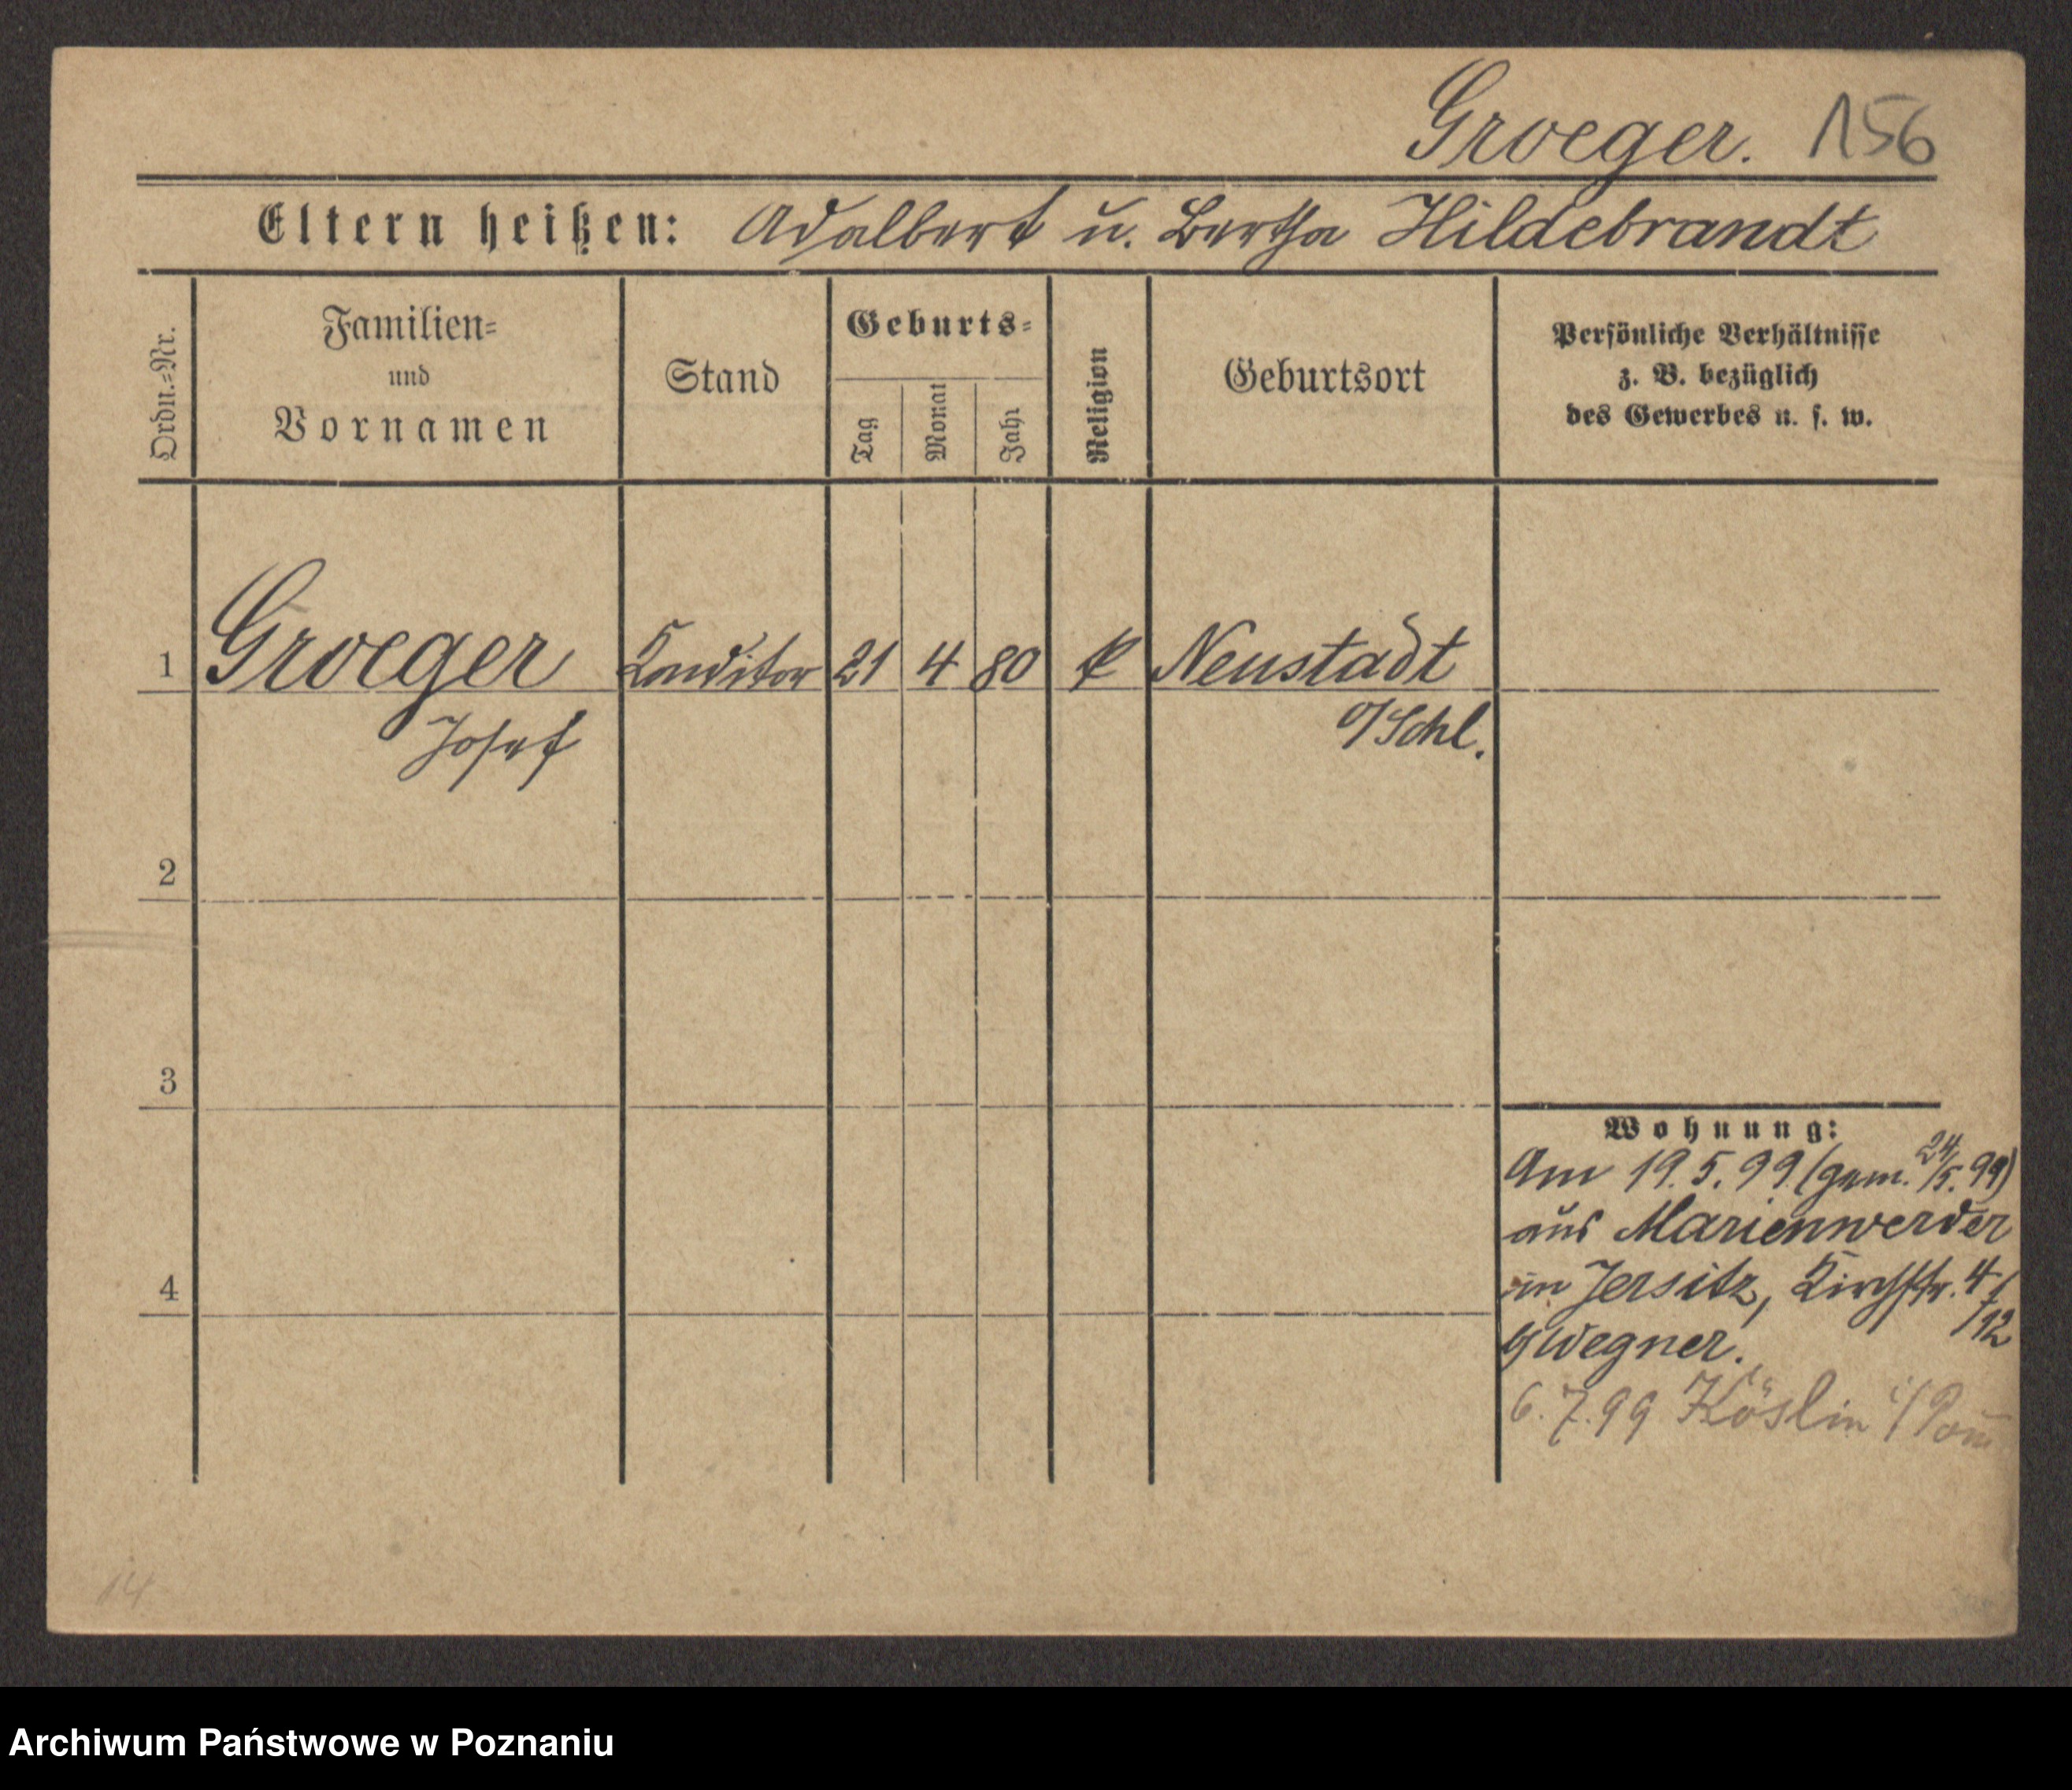 Groeger. 156
Eltern heißen: Adalbert u. Bertha Hildebrandt
Ordn.=Nr.
Familien=
und
Vornamen
Stand
Geburts=
Tag
Monat
Jahr
Religion
Geburtsort
Persönliche Verhältnisse
z. B. bezüglich
des Gewerbes u. s. w.
1 Groeger Conditor 21 4 80 k Neustadt
Josef o/Schl.
2
3
Wohnung:
Am 19.5.99 (gem. 24/5.99)
aus Marienwerder
4
in Jersitz, Kirchstr. 4/
/12
b/Wegner.
6.7.99 Köslin i/Pom
14
Archiwum Państwowe w Poznaniu